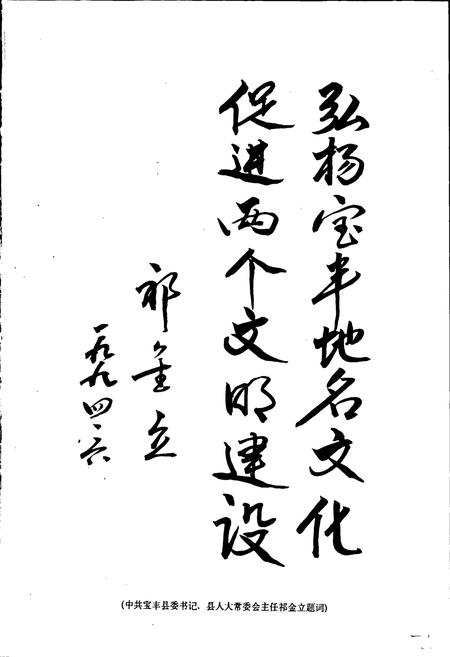 弘扬宝丰地名文化
促进两个文明建设
祁金立
一九九四·六
(中共宝丰县委书记、县人大常委会主任祁金立题词)